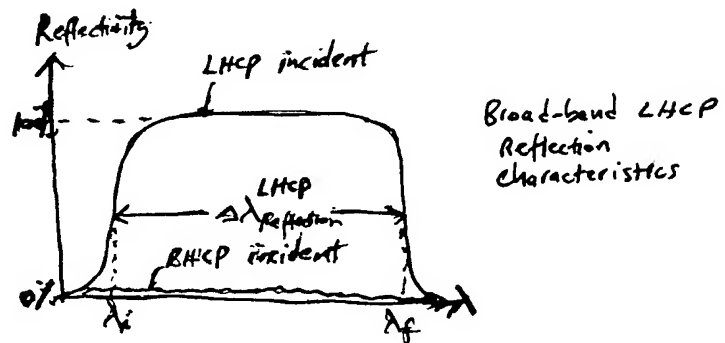 Reflectivity
LHCP incident
100%
Broad-band LHCP
Reflection
characteristics
LHCP
Δλ Reflection
RHCP incident
0%
λi
λf
λ